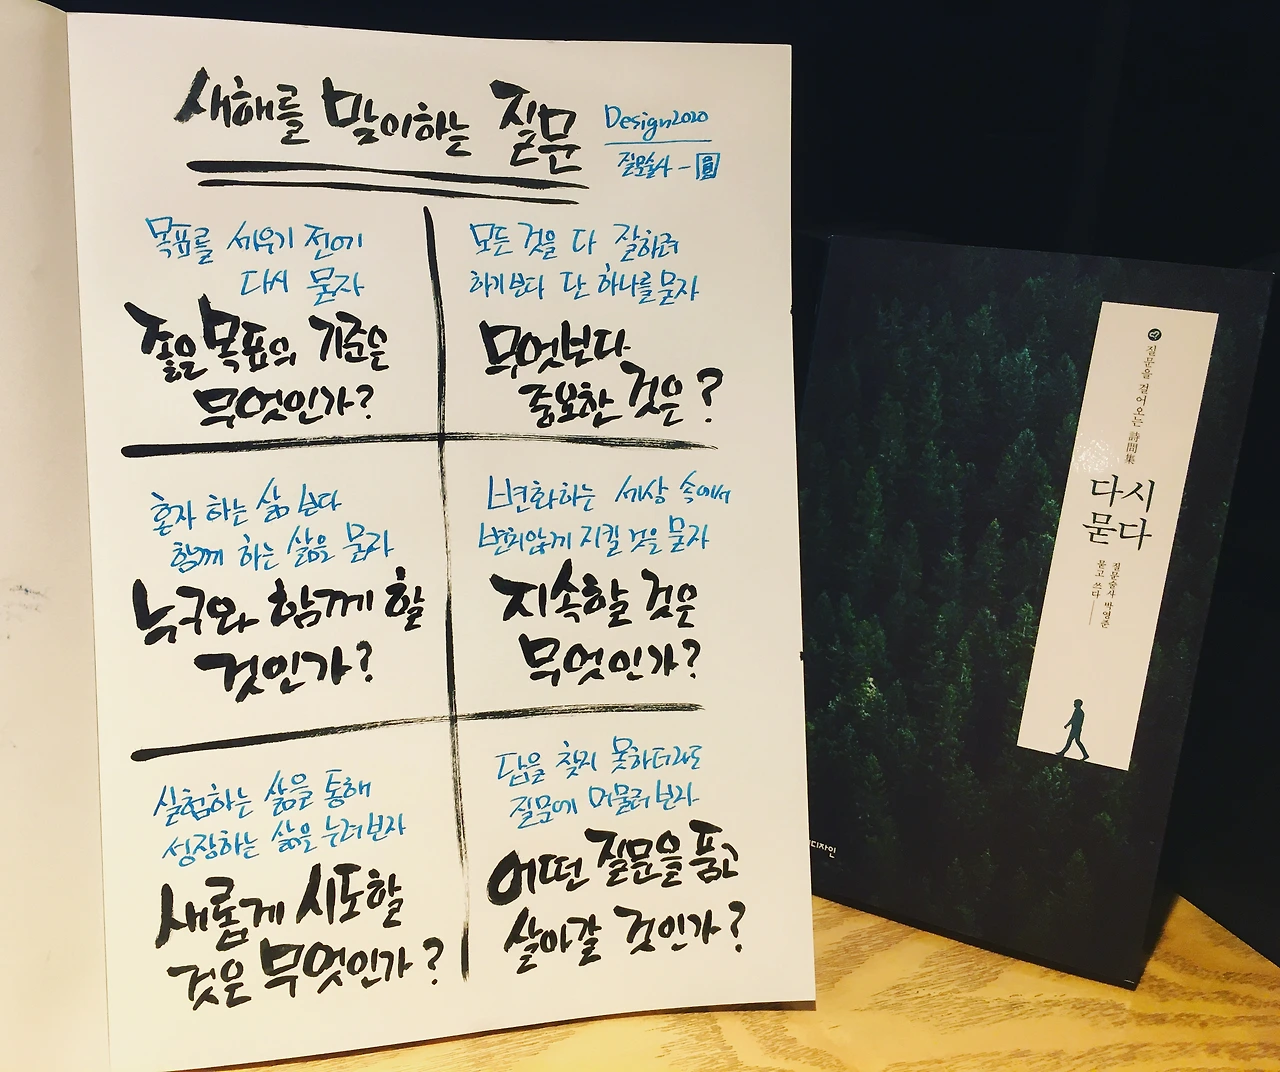 새해를 맞이하는 질문
Design2020
질문술사 - 圓
목표를 세우기 전에
다시 묻자
좋은 목표의 기준은
무엇인가?
모든 것을 다 잘하려
하기보다 단 하나를 묻자
무엇보다
중요한 것은?
혼자 하는 삶 보다
함께 하는 삶을 묻자
누구와 함께 할
것인가?
변화하는 세상 속에서
변치않게 지킬 것을 묻자
지속할 것은
무엇인가?
실험하는 삶을 통해
성장하는 삶을 누려보자
새롭게 시도할
것은 무엇인가?
답을 찾지 못하더라도
질문에 머물러보자
어떤 질문을 품고
살아갈 것인가?
질문을 걸어오는 詩問集
다시
묻다
질문술사 박영준
묻고 쓰다
디자인